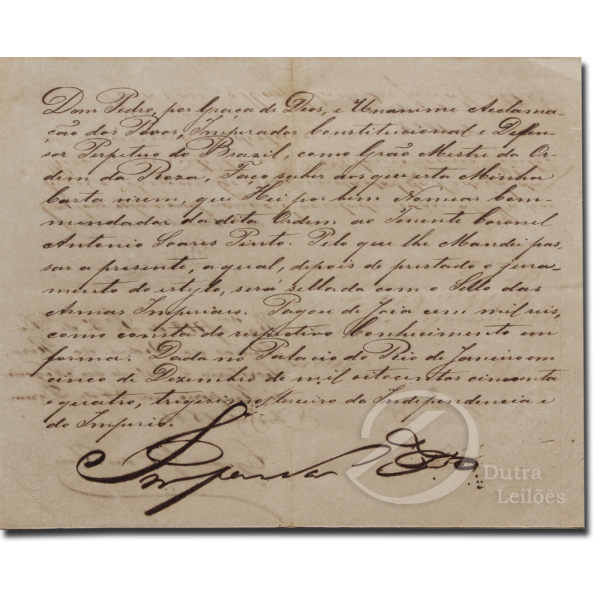 Dom Pedro, por Graça de Deos, e Unanime Acclama-
ção dos Povos, Imperador Constitucional e Defen-
sor Perpetuo do Brazil, como Grão Mestre da Or-
dem da Roza, Faço saber aos que esta Minha
Carta virem, que Hei por bem Nomear Com-
mendador da dita Ordem ao Tenente Coronel
Antonio Soares Pinto. Pelo que lhe Mandei pas-
sar a presente, a qual, depois de prestado o jura-
mento do estylo, será sellada com o Sello das
Armas Imperiaes. Pagou de Joia cem mil reis,
como consta do respectivo Conhecimento em
forma. Dada no Palacio do Rio de Janeiro em
cinco de Dezembro de mil oitocentos cincoenta
e quatro, trigesimo terceiro da Independencia e
do Imperio.
Imperador
Dutra
Leilões